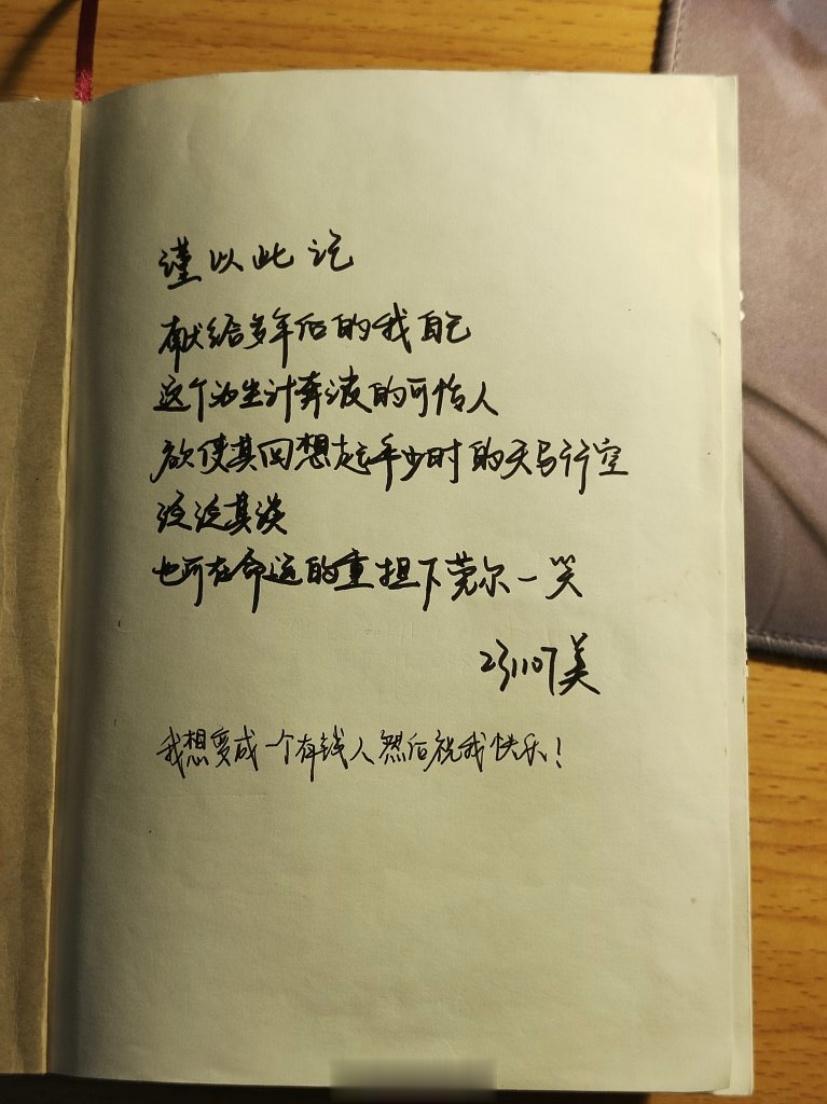 谨以此记
献给多年后的我自己
这个为生计奔波的可怜人
欲使其回想起年少时的天马行空
泛泛其谈
也可在命运的重担下莞尔一笑
231107美
我想变成一个有钱人然后祝我快乐！